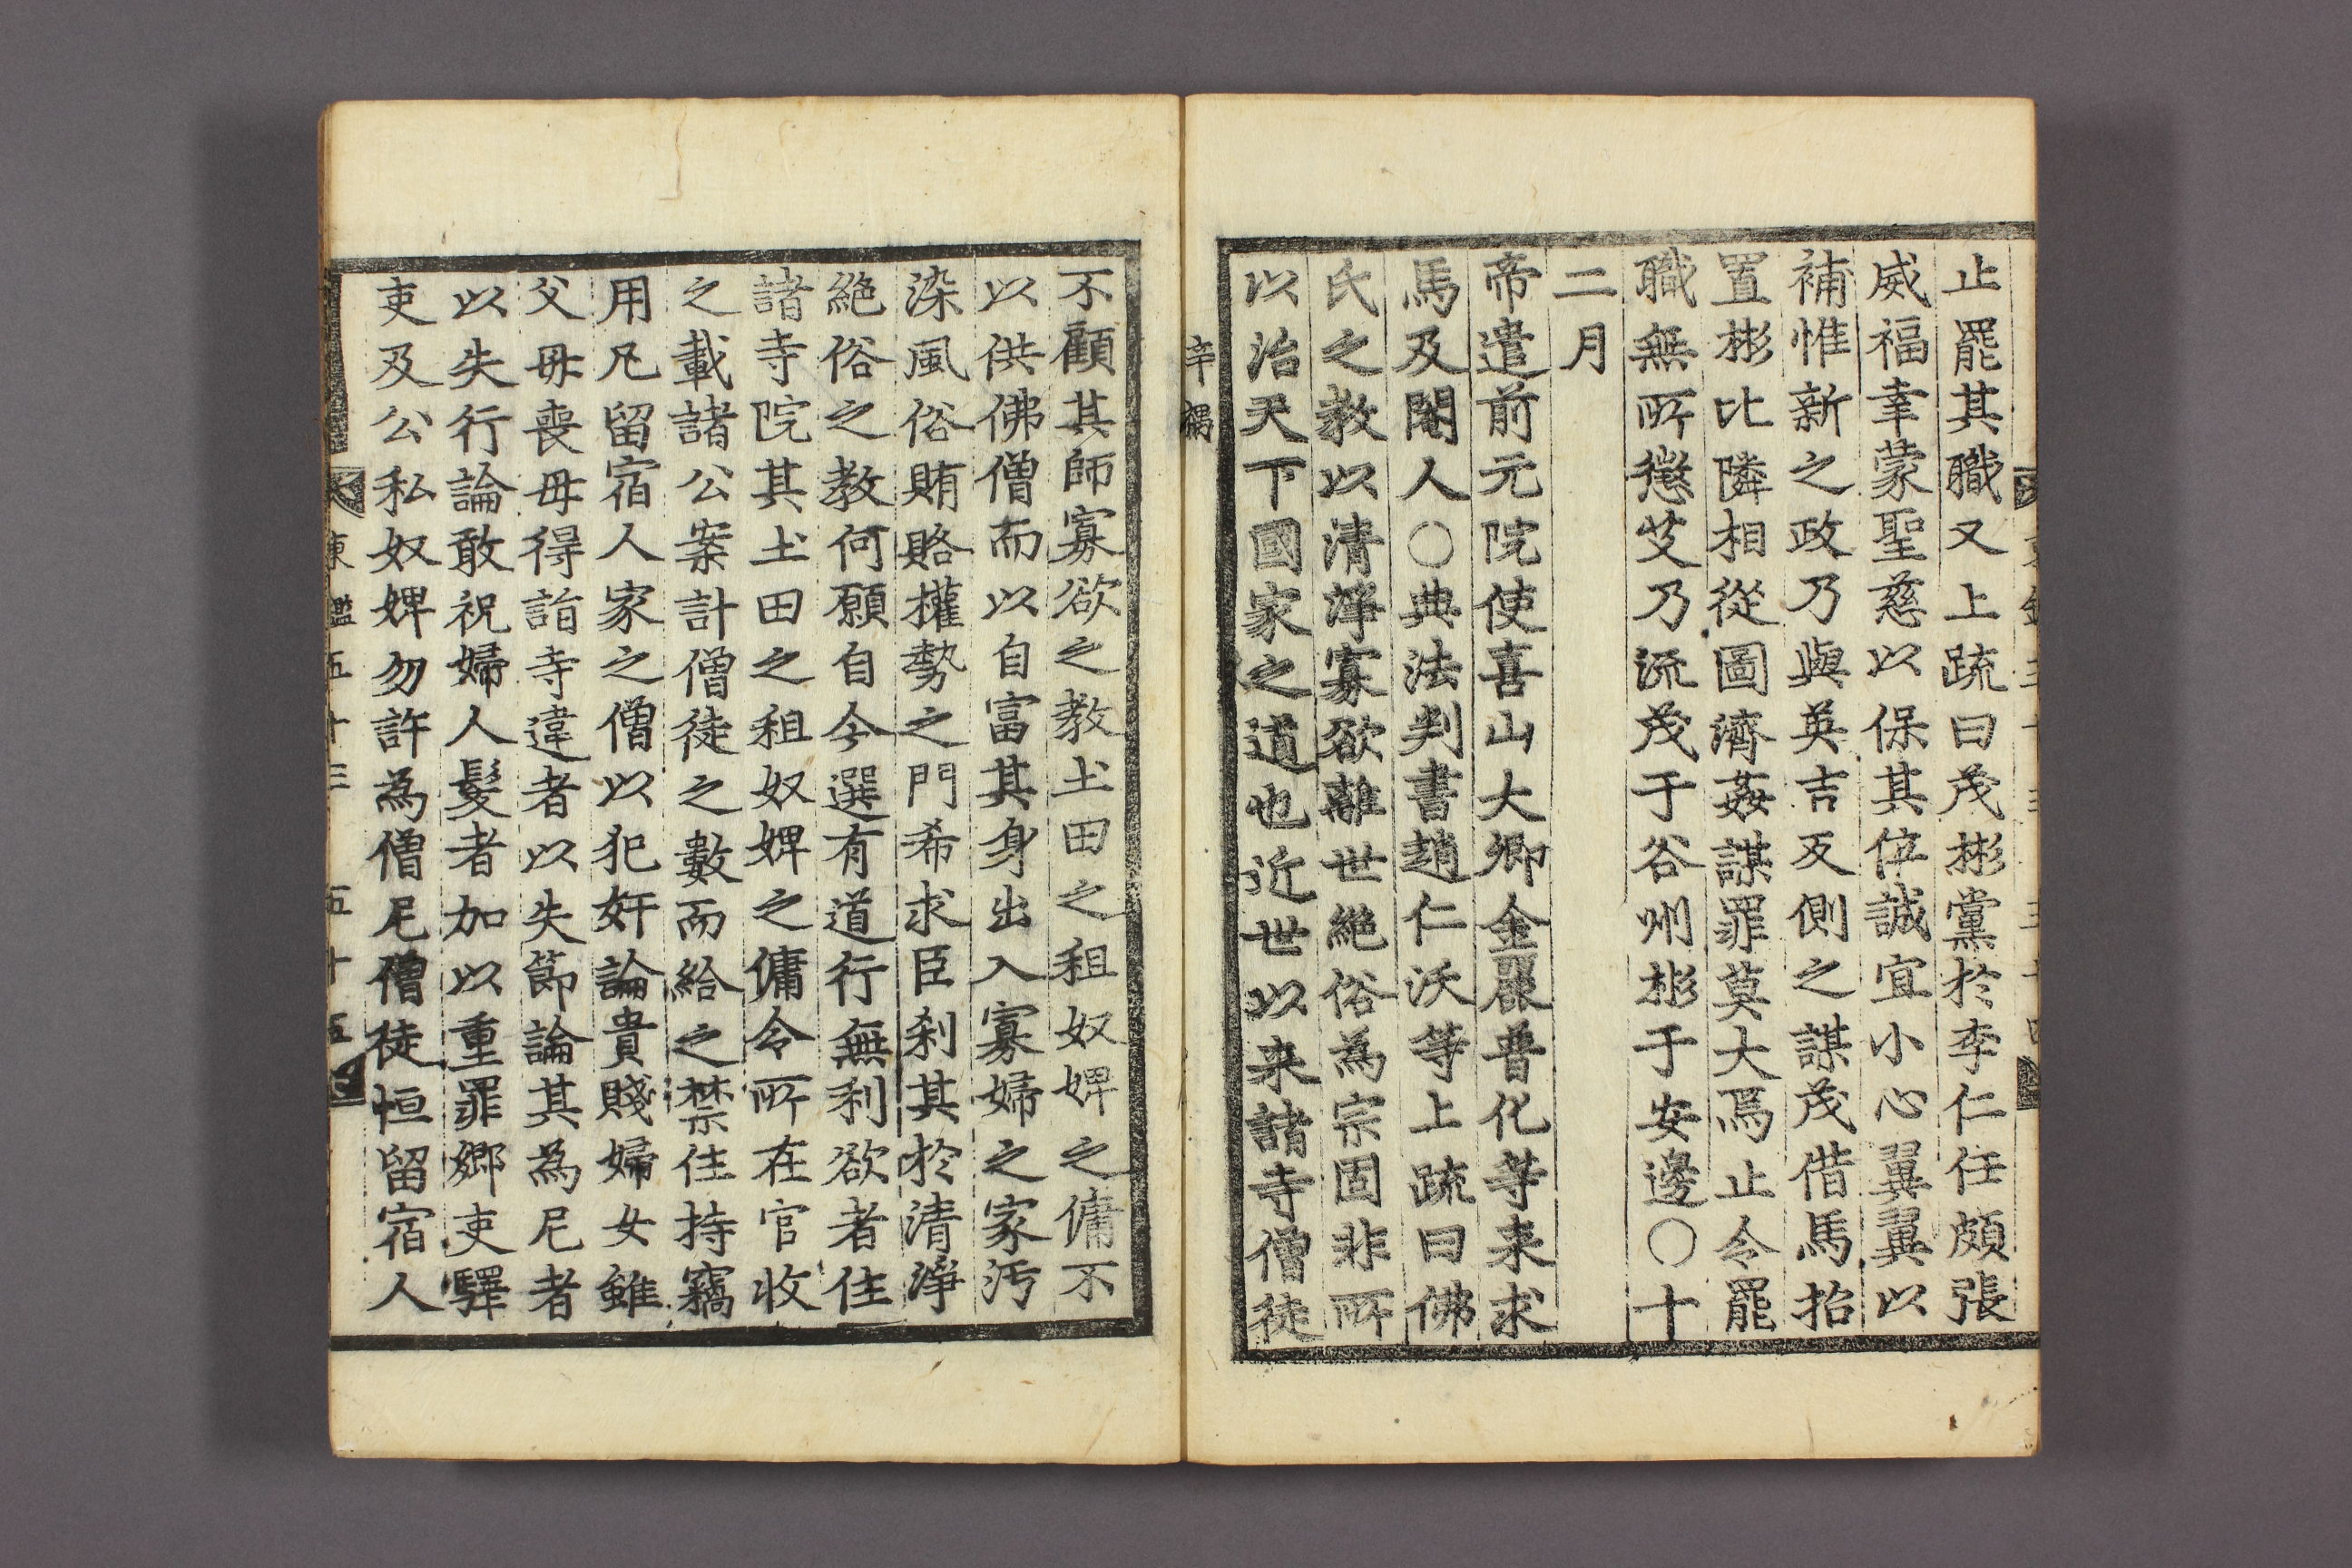 止罷其職又上疏曰茂彬黨於李仁任頗張
威福幸蒙聖慈以保其位誠宜小心翼翼以
補惟新之政乃與英吉反側之謀茂借馬招
置彬比隣相從圖濟姦謀罪莫大焉止令罷
職無所懲艾乃流茂于谷州彬于安邊○十
二月
帝遣前元院使喜山大卿金麗普化等来求
馬及閹人○典法判書趙仁沃等上疏曰佛
氏之教以清淨寡欲離世絶俗為宗固非所
以治天下國家之道也近世以来諸寺僧徒
辛禑
不顧其師寡欲之教土田之租奴婢之傭不
以供佛僧而以自富其身出入寡婦之家汚
染風俗賄賂權勢之門希求臣刹其於清淨
絶俗之教何願自今選有道行無利欲者住
諸寺院其土田之租奴婢之傭令所在官收
之載諸公案計僧徒之數而給之禁住持竊
用凡留宿人家之僧以犯奸論貴賤婦女雖
父母喪毋得詣寺違者以失節論其為尼者
以失行論敢祝婦人髮者加以重罪鄉吏驛
吏及公私奴婢勿許為僧尼僧徒恒留宿人
東鑑五十三 五十五